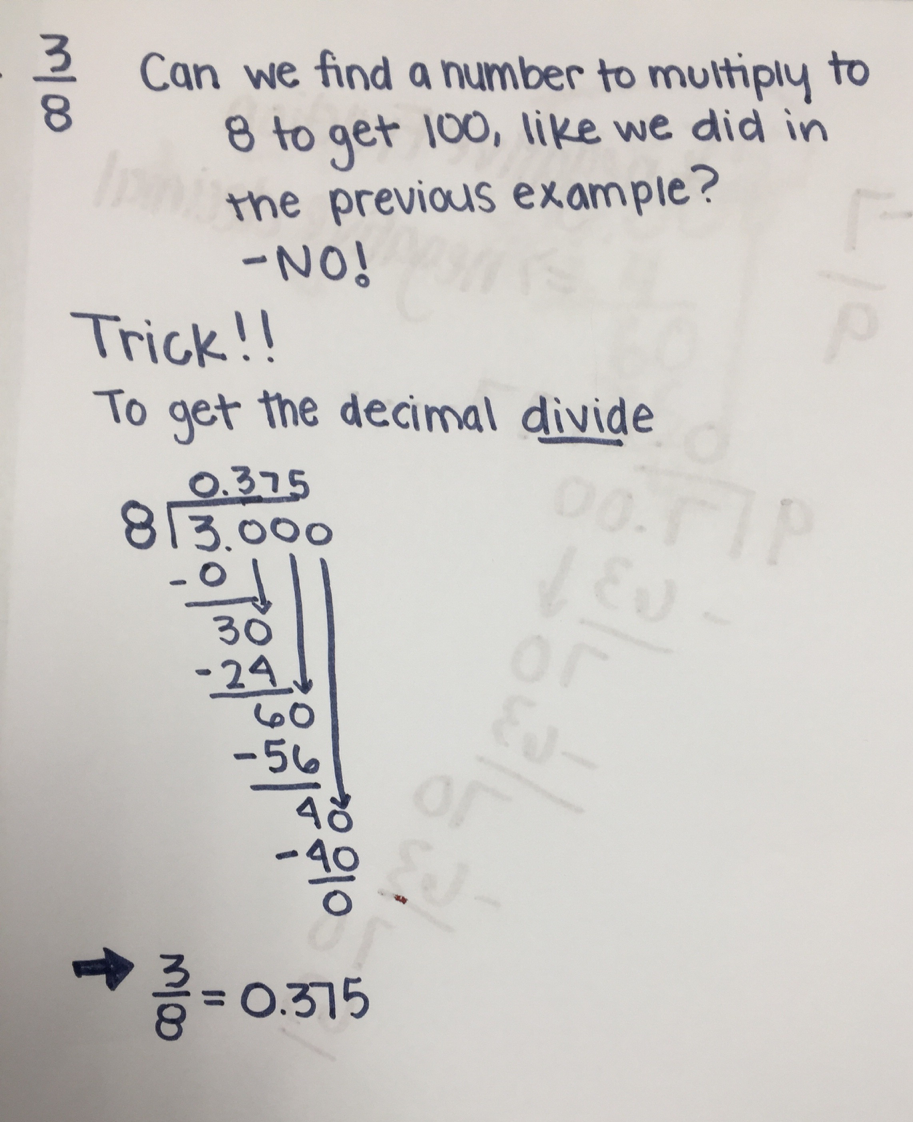 3/8 Can we find a number to multiply to
8 to get 100, like we did in
the previous example?
-NO!
Trick!!
To get the decimal divide
0.375
8 3.000
-0
30
-24
60
-56
40
-40
0
→ 3/8 = 0.375